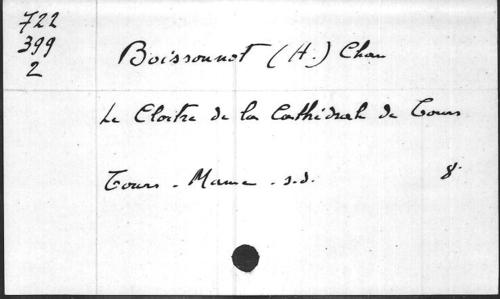 722
399
2
Boissonnot (H.) Chan
Le Cloitre de la Cathédrale de Tours
Tours - Mame - s.d. 8°